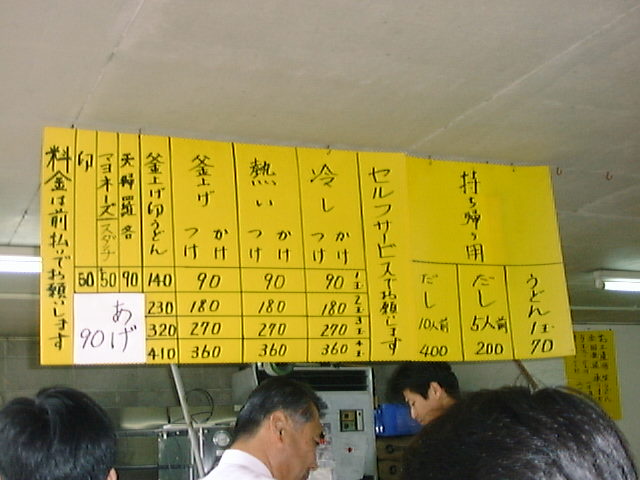 持ち帰り用
うどん 1玉 70
だし 5人前 200
だし 10人前 400
セルフサービスでお願いします
冷し かけ つけ
1玉 90
2玉 180
3玉 270
4玉 360
熱い かけ つけ
90
180
270
360
釜上げ かけ つけ
90
180
270
360
釜上げ卵うどん
140
230
320
410
天婦羅各 90
マヨネーズ/スダチ 50
卵 50
あげ 90
料金は前払いでお願いします